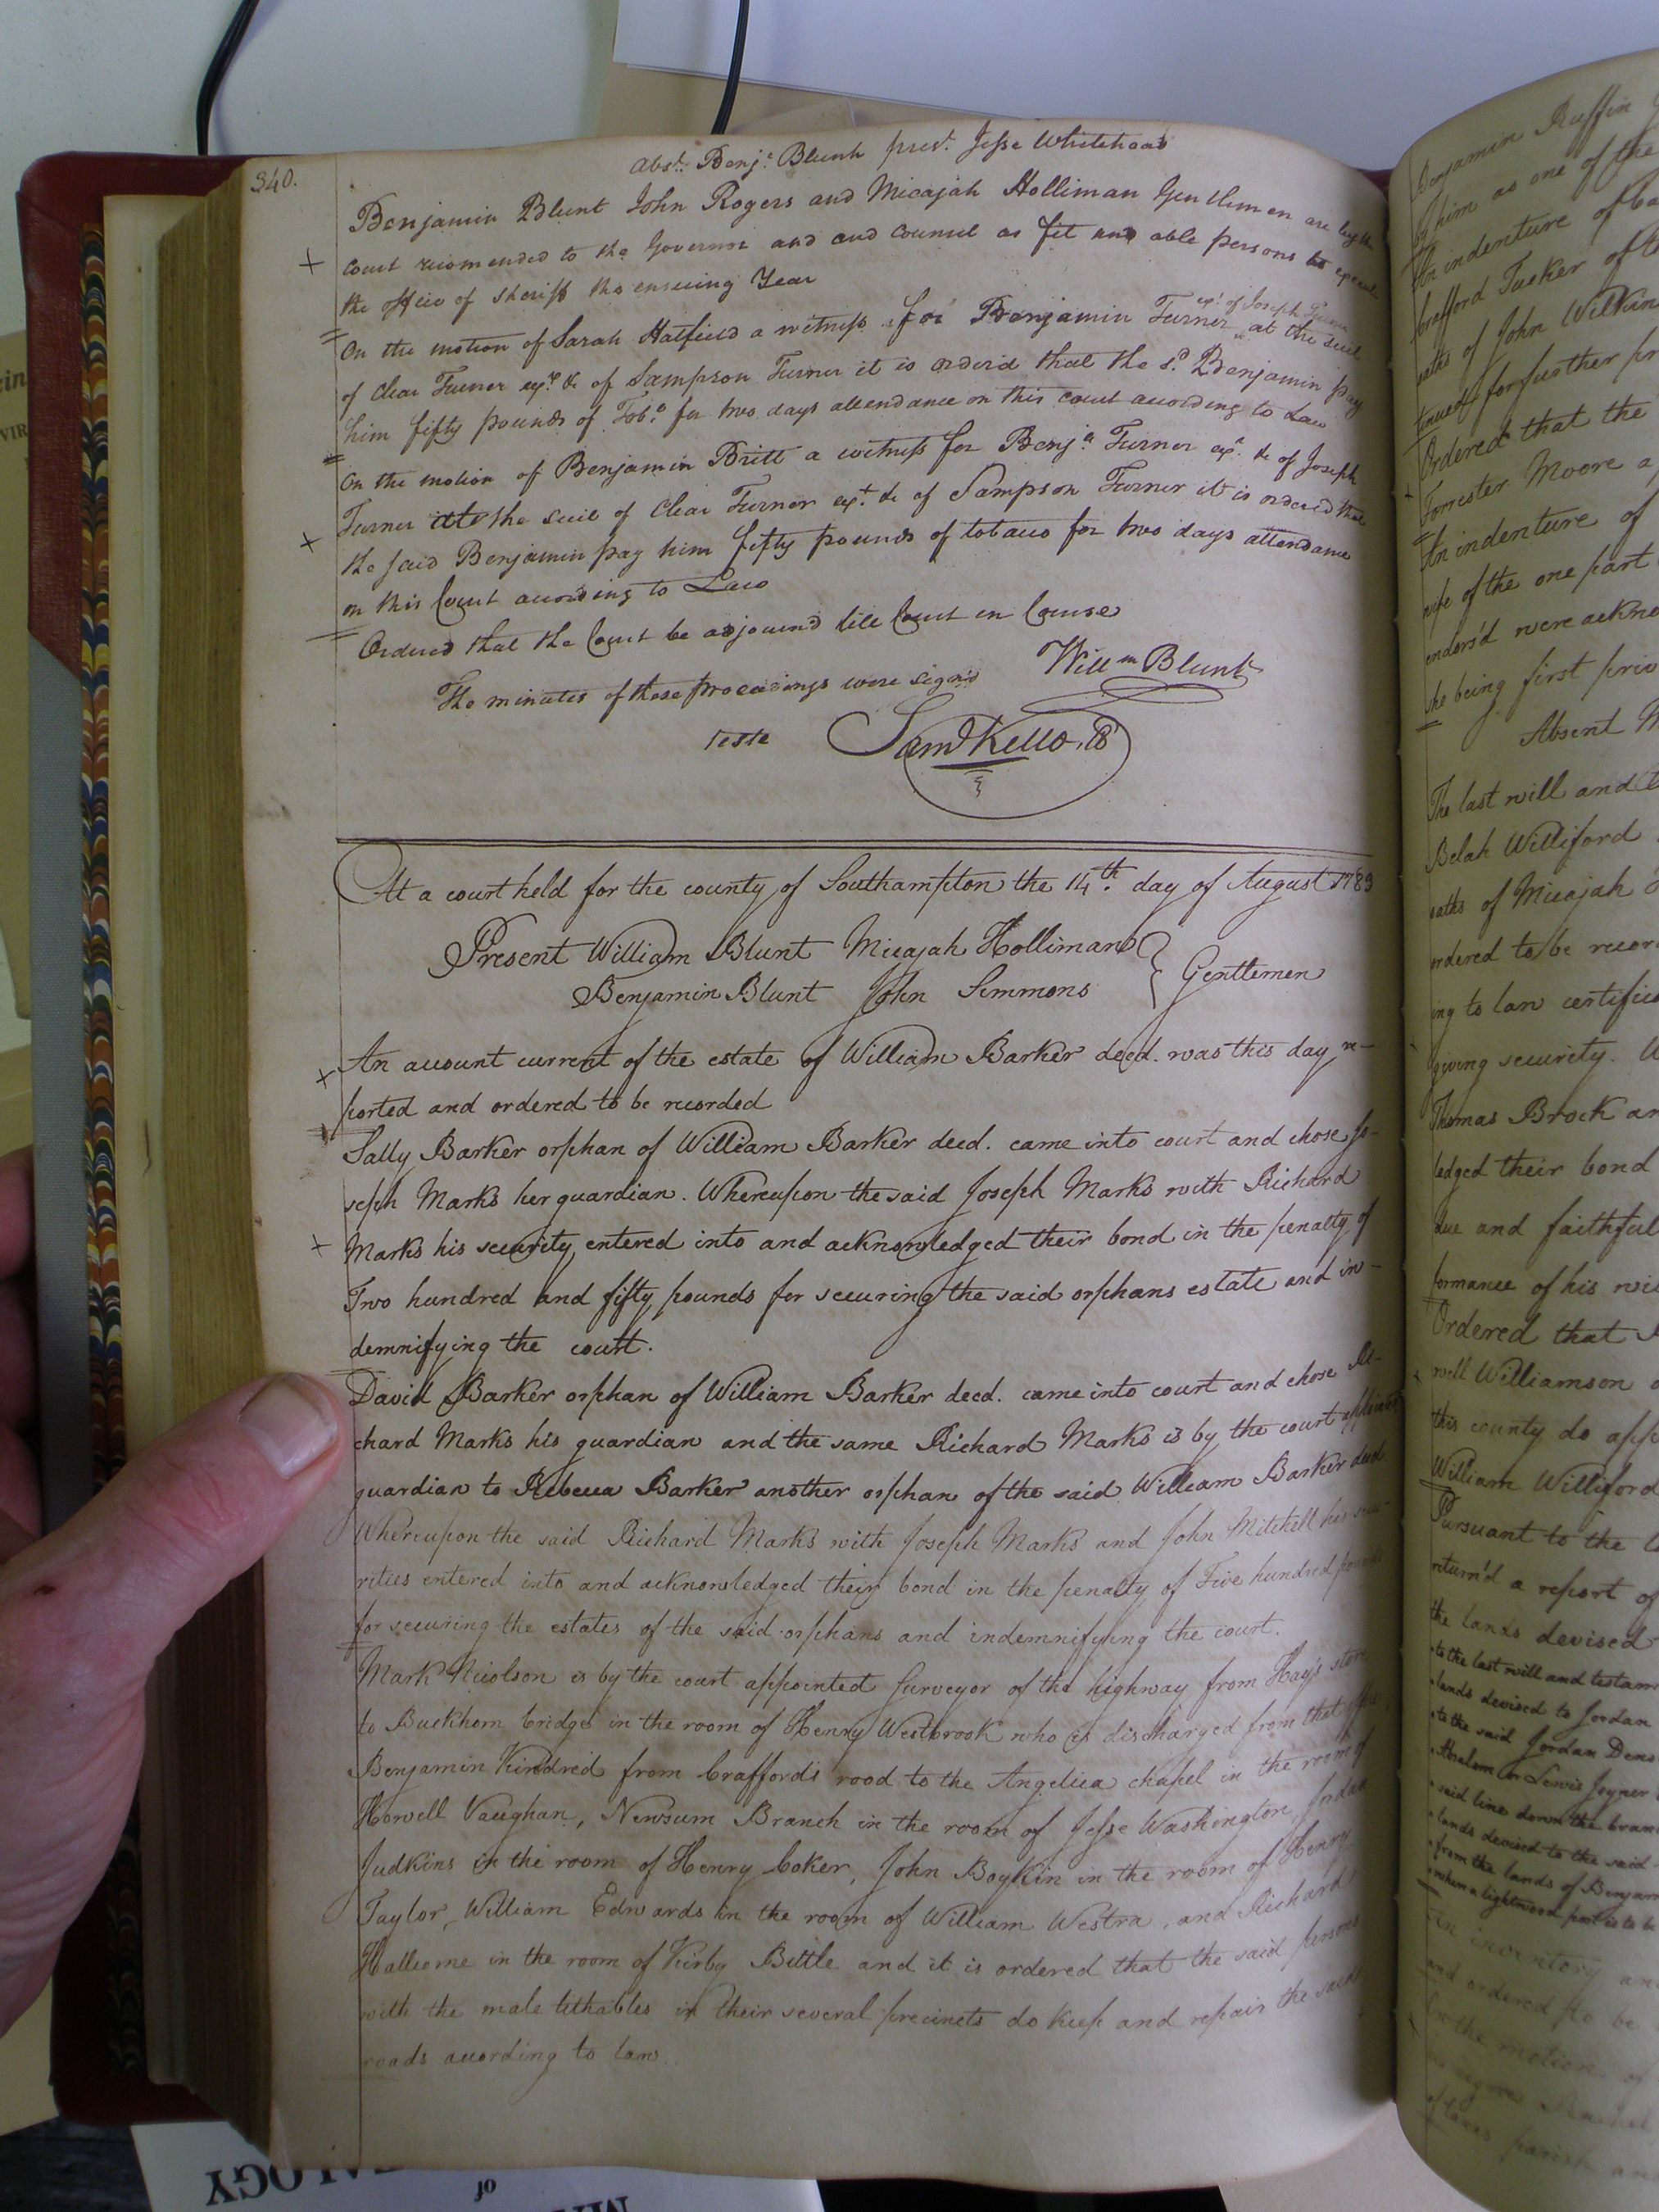 340.
Abst. Benja. Blunt prest. Jesse Whitehead
Benjamin Blunt John Rogers and Micajah Holliman Gentlemen are by the
Court recomended to the Governor and and Counsel as fit and able persons to execute
the office of Sheriff the ensuing Year
On the motion of Sarah Hatfield a witness for Benjamin Turner exr. of Joseph Turner at the suit
of Clear Turner exx. &c of Sampson Turner it is orderd that the sd. Benjamin pay
him fifty pounds of Tobo. for two days attendance on this court according to Law
On the motion of Benjamin Britt a witness for Benja. Turner exr. &c of Joseph
Turner at the suit of Clear Turner ext. &c of Sampson Turner it is ordered that
the said Benjamin pay him fifty pounds of tobacco for two days attendance
on this Court according to Law
Ordered that the Court be adjournd till Court in Course
The minutes of these proceedings were signd Willm Blunt
Teste Saml Kello. C
At a court held for the county of Southampton the 14th. day of August 1789
Present William Blunt Micajah Holliman
Benjamin Blunt John Simmons } Gentlemen
An account current of the estate of William Barker decd. was this day re-
ported and ordered to be recorded
Sally Barker orphan of William Barker decd. came into court and chose Jo-
seph Marks her guardian. Whereupon the said Joseph Marks with Richard
Marks his security entered into and acknowledged their bond in the penalty of
Two hundred and fifty pounds for securing the said orphans estate and in-
demnifying the court.
David Barker orphan of William Barker decd. came into court and chose Ri-
chard Marks his guardian and the same Richard Marks is by the court appointed
guardian to Rebecca Barker another orphan of the said William Barker decd
Whereupon the said Richard Marks with Joseph Marks and John Mitchell his secu-
rities entered into and acknowledged their bond in the penalty of Five hundred pounds
for securing the estates of the said orphans and indemnifying the court.
Mark Nicolson is by the court appointed Surveyor of the highway from Hay's store
to Buckhorn bridge in the room of Henry Westbrook who is discharged from that office,
Benjamin Kindred from Craffords road to the Angelica chapel in the room of
Howell Vaughan, Newsum Branch in the room of Jesse Washington, Jordan
Judkins in the room of Henry Coker, John Boykin in the room of Henry
Taylor, William Edwards in the room of William Westra, and Richard
Hallcome in the room of Kirby Bittle and it is ordered that the said persons
with the male tithables in their several precincts do keep and repair the said
roads according to law.
Benjamin Ruffin
by him as one of the
An indenture of ba
Crafford Tucker of th
oaths of John Wilkin
tinued for further pr
Ordered that the
Forrester Moore a
An indenture of
wife of the one part
endors'd were ackno
she being first priv
Absent
The last will and te
Belah Williford
oaths of Micajah
ordered to be recor
ing to law certific
giving security. W
Thomas Brock an
ledged their bond
due and faithful
formance of his wi
Ordered that
well Williamson
this county do app
William Williford
Pursuant to the
return'd a report of
the lands devised
to the last will and testam
lands devised to Jordan
to the said Jordan Dens
Absalom or Lewis Joyner
said line down the bran
lands devised to the said
from the lands of Benjam
when a lightwood post is to be
An inventory an
and ordered to be
On the motion of